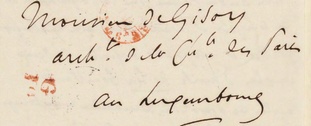 Monsieur de Gisors
archte. de la Chbre. des Pairs
au Luxembourg